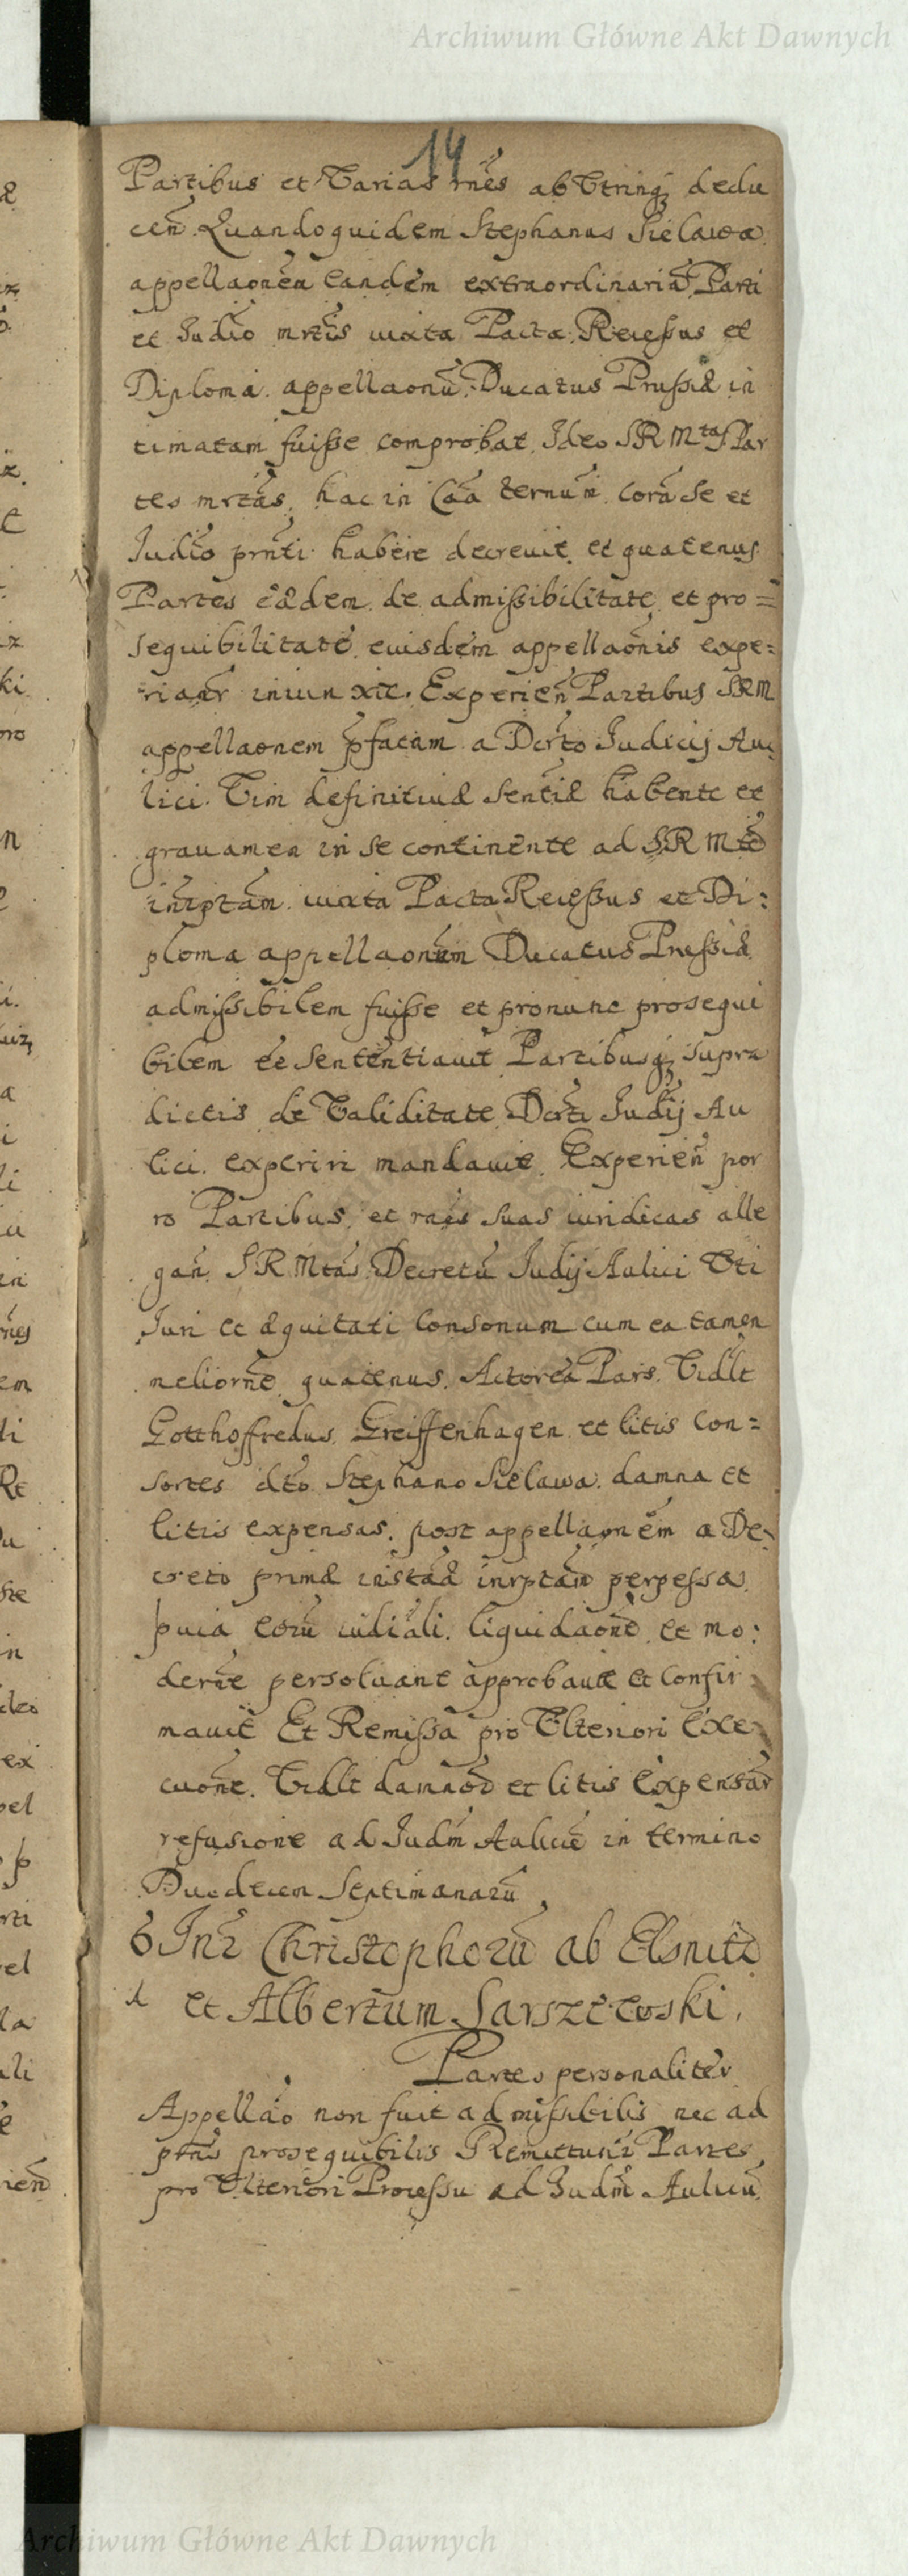 Archiwum Główne Akt Dawnych
14
Partibus et Varias rnes ab Utrinqz dedu
cen Quandoquidem Stephanus Sielawa
appellaonem eandem extraordinaria Parti
et Judio mrtis iuxta Pacta Recessus et
Diploma appellaonu Ducatus Prussiæ in
timatam fuisse comprobat Ideo SRMtas Par
tes mrtas hac in Caa ternum cora Se et
Judio prnti habere decrevit et quatenus
Partes eædem de admissibilitate et pro=
sequibilitate euisdem appellaonis expe:
riantr iniunxit. Experien Partibus SRM
appellaonem pfatam a Dcrto Judicij Au
lici Vim definitivæ Sentiæ habente et
gravamen in se continente ad SRMte
inrptam iuxta Pacta Recessus et Di:
ploma appellaonum Ducatus Prussiæ
admissibilem fuisse et pronunc prosequi
bilem ee Sententiavit Partibusqz supra
dictis de Validitate Dcrti Judij Au
lici experiri mandavit Experien por
ro Partibus et rnes suas iuridicas alle
gan SRMtas Decretu Judij Aulici Uti
Juri et æquitati Consonum cum ea tamen
meliorne quatenus Actorea Pars Vidlt
Gotthoffredus Greiffenhagen et litis Con=
sortes dto Stephano Sielawa damna et
litis expensas post appellaonem a De
creto primæ instaæ inrptam perpessas
pvia eoru iudiali liquidaone et mo:
derne persolvant approbavit et Confir
mavit Et Remissa pro Ulteriori Exe
cuone Vidlt damnor et litis Expensar
refusione ad Judm Aulicu in termino
Duodecim Septimanaru
6 Intr Christophoru ab Elsnitz
et Albertum Sarszewski
Partes personaliter
Appellao non fuit admissibilis nec ad
pns prosequibilis Remittuntr Partes
pro Ulteriori Processu ad Judm Aulicu
Archiwum Główne Akt Dawnych